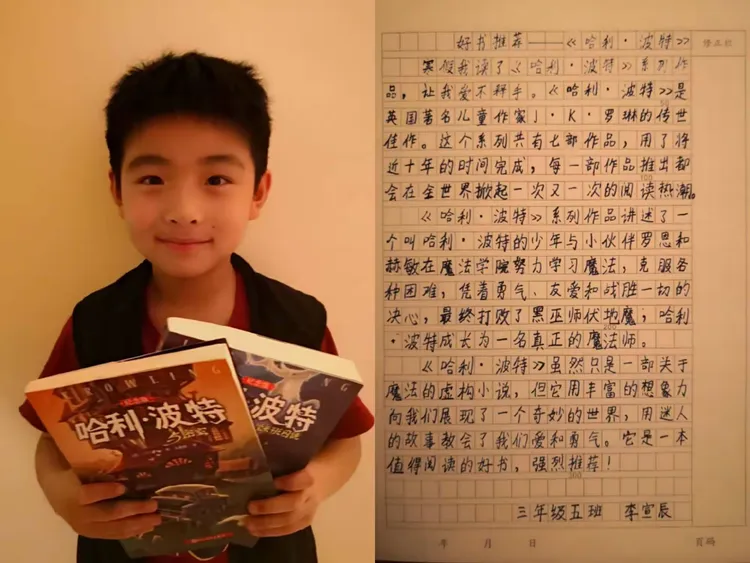 ROWLING
纪念版
哈利·波特
与密室
波特
好书推荐——《哈利·波特》
寒假我读了《哈利·波特》系列作
品,让我爱不释手。《哈利·波特》是
英国著名儿童作家J·K·罗琳的传世
佳作。这个系列共有七部作品,用了将
近十年的时间完成,每一部作品推出都
会在全世界掀起一次又一次的阅读热潮。
《哈利·波特》系列作品讲述了一
个叫哈利·波特的少年与小伙伴罗恩和
赫敏在魔法学院努力学习魔法,克服各
种困难,凭着勇气、友爱和战胜一切的
决心,最终打败了黑巫师伏地魔,哈利
·波特成长为一名真正的魔法师。
《哈利·波特》虽然只是一部关于
魔法的虚构小说,但它用丰富的想象力
向我们展现了一个奇妙的世界,用迷人
的故事教会了我们爱和勇气。它是一本
值得阅读的好书,强烈推荐!
三年级五班 李宣辰
年 月 日 页码
100
200
300